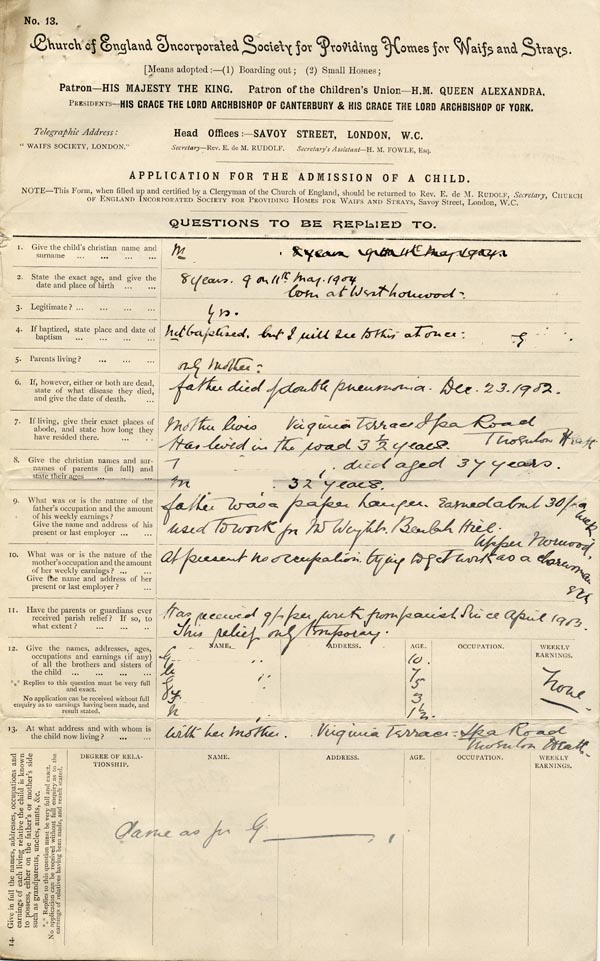 No. 13.
Church of England Incorporated Society for Providing Homes for Waifs and Strays.
[Means adopted:—(1) Boarding out; (2) Small Homes;
Patron—HIS MAJESTY THE KING. Patron of the Children's Union—H.M. QUEEN ALEXANDRA.
PRESIDENTS—HIS GRACE THE LORD ARCHBISHOP OF CANTERBURY & HIS GRACE THE LORD ARCHBISHOP OF YORK.
Telegraphic Address: Head Offices:—SAVOY STREET, LONDON, W.C.
"WAIFS SOCIETY, LONDON." Secretary—Rev. E. de M. RUDOLF. Secretary's Assistant—H. M. FOWLE, Esq.
APPLICATION FOR THE ADMISSION OF A CHILD.
NOTE—This Form, when filled up and certified by a Clergyman of the Church of England, should be returned to Rev. E. de M. RUDOLF, Secretary, CHURCH
OF ENGLAND INCORPORATED SOCIETY FOR PROVIDING HOMES FOR WAIFS AND STRAYS, Savoy Street, London, W.C.
QUESTIONS TO BE REPLIED TO.
1. Give the child's christian name and
surname
M 8 years 9 on 11th May 1904
2. State the exact age, and give the
date and place of birth
8 years. 9 on 11th May. 1904
born at West Norwood
3. Legitimate?
Yes.
4. If baptized, state place and date of
baptism
Not baptised, but I will see to this at once.
5. Parents living?
only Mother.
6. If, however, either or both are dead,
state of what disease they died,
and give the date of death.
father died of double pneumonia. Dec. 23. 1902.
7. If living, give their exact places of
abode, and state how long they
have resided there.
Mother lives Virginia Terrace Spa Road
Thornton Heath
Has lived in the road 3½ years.
8. Give the christian names and sur-
names of parents (in full) and
state their ages
died aged 37 years.
M 32 years.
9. What was or is the nature of the
father's occupation and the amount
of his weekly earnings?
Give the name and address of his
present or last employer
father was a paper hanger. Earned about 30/- a week,
used to work for Mr Beulah Hill.
Upper Norwood,
10. What was or is the nature of the
mother's occupation and the amount
of her weekly earnings?
Give the name and address of her
present or last employer?
At present no occupation. trying to get work as a charwoman
11. Have the parents or guardians ever
received parish relief? If so, to
what extent?
Has received per week from parish. Since April 1903.
This relief only temporary.
12. Give the names, addresses, ages,
occupations and earnings (if any)
of all the brothers and sisters of
the child
*** Replies to this question must be very full
and exact.
No application can be received without full
enquiry as to earnings having been made, and
result stated.
NAME. ADDRESS. AGE. OCCUPATION. WEEKLY
EARNINGS.
10.
7
5
3
1½
None
13. At what address and with whom is
the child now living?
With her mother. Virginia Terrace Spa Road
Thornton Heath
14. Give in full the names, addresses, occupations and
earnings of each living relative the child is known
to possess, either on the father's or mother's side
such as grandparents, uncles, aunts, &c.
*** Replies to this question must be very full and exact.
No application can be received without full enquiry as to the
earnings of relatives having been made, and result stated.
DEGREE OF RELA-
TIONSHIP. NAME. ADDRESS. AGE. OCCUPATION. WEEKLY
EARNINGS.
Same as for G